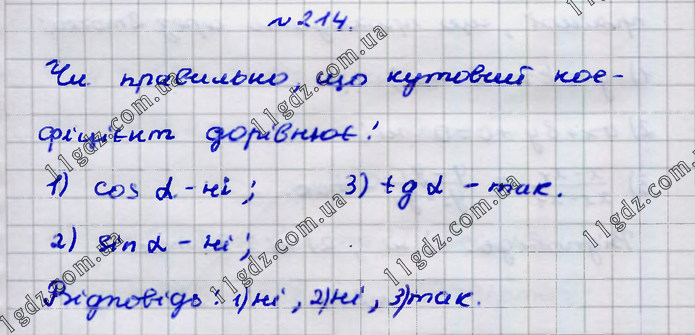 №214.
Чи правильно, що кутовий кое-
фіцієнт дорівнює:
1) cos α - ні; 3) tg α - так.
2) sin α - ні;
Відповідь: 1) ні, 2) ні, 3) так.
11gdz.com.ua
11gdz.com.ua
11gdz.com.ua
11gdz.com.ua
11gdz.com.ua
11gdz.com.ua
11gdz.com.ua
11gdz.com.ua